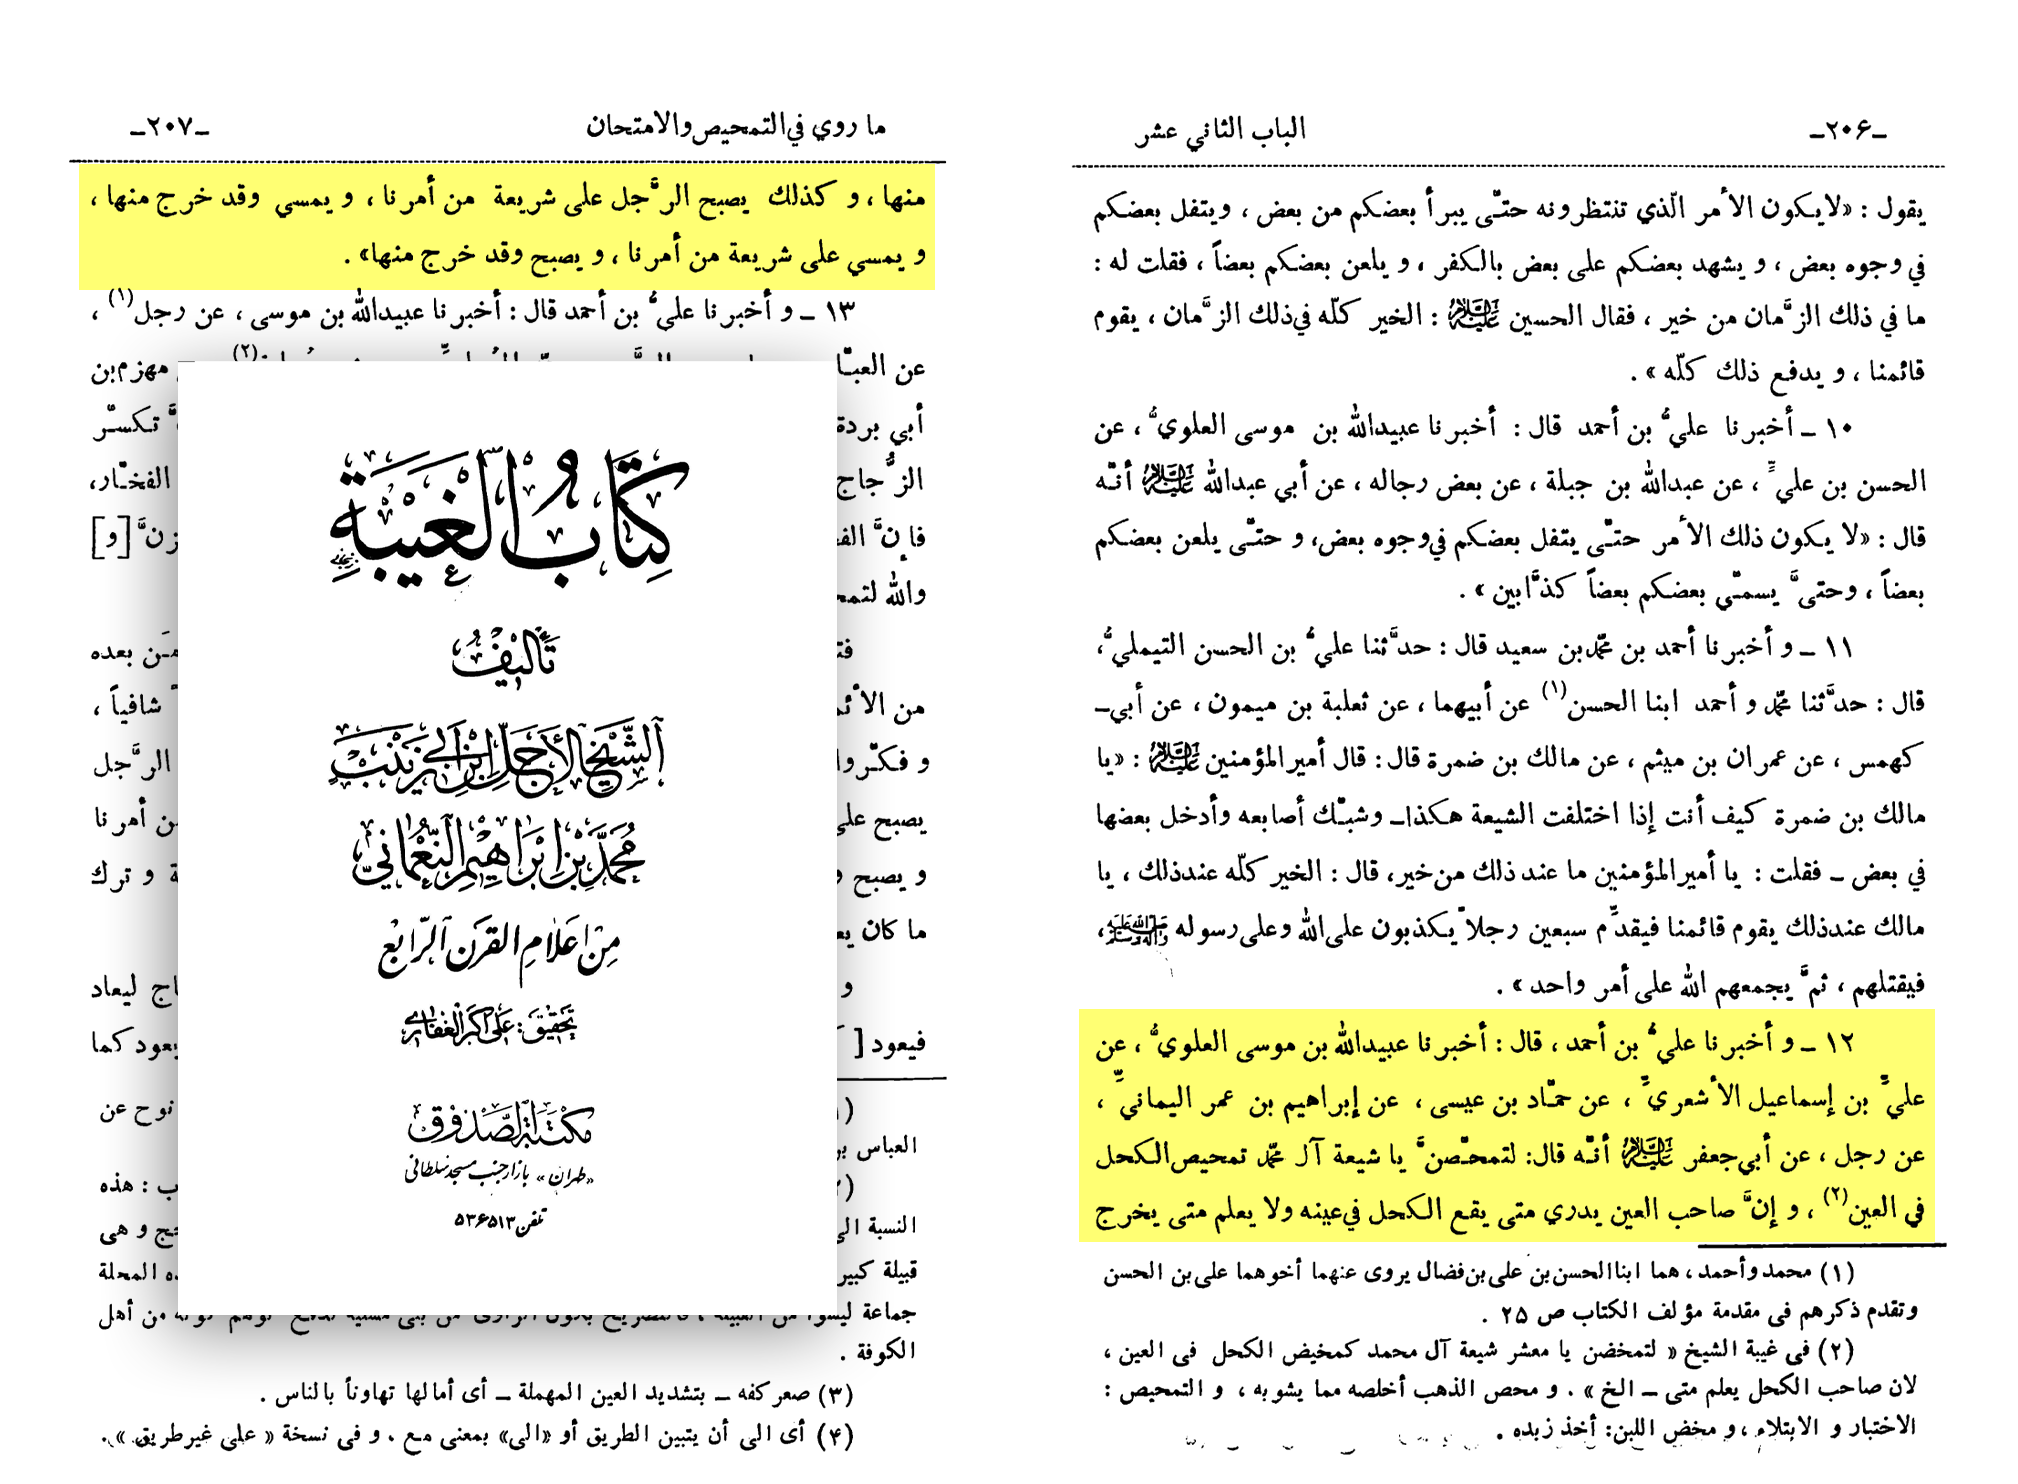 الباب الثاني عشر
ـ۲۰۶ـ
يقول : «لايكون الأمر الّذي تنتظرونه حتّى يبرأ بعضكم من بعض ، ويتفل بعضكم
في وجوه بعض ، و يشهد بعضكم على بعض بالكفر ، و يلعن بعضكم بعضاً ، فقلت له :
ما في ذلك الزَّمان من خير ، فقال الحسين عليه السلام : الخير كلّه في ذلك الزَّمان ، يقوم
قائمنا ، و يدفع ذلك كلّه » .
۱۰ ـ أخبرنا عليُّ بن أحمد قال : أخبرنا عبيدالله بن موسى العلويُّ ، عن
الحسن بن عليٍّ ، عن عبدالله بن جبلة ، عن بعض رجاله ، عن أبي عبدالله عليه السلام أنّه
قال : «لا يكون ذلك الأمر حتّى يتفل بعضكم في وجوه بعض، و حتّى يلعن بعضكم
بعضاً ، وحتىَّ يسمّي بعضكم بعضاً كذَّابين » .
۱۱ ـ و أخبرنا أحمد بن محمّد بن سعيد قال : حدَّثنا عليُّ بن الحسن التيمليُّ،
قال : حدَّثنا محمّد و أحمد ابنا الحسن(۱) عن أبيهما ، عن ثعلبة بن ميمون ، عن أبي‌ـ
كهمس ، عن عمران بن ميثم ، عن مالك بن ضمرة قال : قال أميرالمؤمنين عليه السلام : «يا
مالك بن ضمرة كيف أنت إذا اختلفت الشيعة هكذاـ وشبّك أصابعه وأدخل بعضها
في بعض ـ فقلت : يا أميرالمؤمنين ما عند ذلك من خير، قال : الخير كلّه عندذلك ، يا
مالك عندذلك يقوم قائمنا فيقدِّم سبعين رجلاً يكذبون على الله وعلى رسوله صلى الله عليه وآله وسلم ،
فيقتلهم ، ثمَّ يجمعهم الله على أمر واحد » .
۱۲ ـ و أخبرنا عليُّ بن أحمد ، قال : أخبرنا عبيدالله بن موسى العلويُّ ، عن
عليِّ بن إسماعيل الأشعريِّ ، عن حمّاد بن عيسى ، عن إبراهيم بن عمر اليمانيِّ ،
عن رجل ، عن أبي جعفر عليه السلام أنّه قال: لتمحّصنَّ يا شيعة آل محمّد تمحيص الكحل
في العين(۲) ، و إنَّ صاحب العين يدري متى يقع الكحل في عينه ولا يعلم متى يخرج
(۱) محمد وأحمد ، هما ابنا الحسن بن على بن فضال يروى عنهما أخوهما على بن الحسن
وتقدم ذكرهم فى مقدمة مؤلف الكتاب ص ۲۵ .
(۲) فى غيبة الشيخ « لتمخضن يا معشر شيعة آل محمد كمخيض الكحل فى العين ،
لان صاحب الكحل يعلم متى ـ الخ » . و محص الذهب أخلصه مما يشوبه ، و التمحيص :
الاختبار و الابتلاء ، و مخض اللبن: أخذ زبده .
ما روي في التمحيص والامتحان
ـ۲۰۷ـ
منها ، و كذلك يصبح الرَّجل على شريعة من أمرنا ، و يمسي وقد خرج منها ،
و يمسي على شريعة من أمرنا ، و يصبح وقد خرج منها» .
۱۳ ـ و أخبرنا عليُّ بن أحمد قال : أخبرنا عبيدالله بن موسى ، عن رجل(۱) ،
عن العبّا (۲) مهزم بن
أبي بردة تكسّر
الزُّجاج الفخّار،
فإنَّ الف [و]
والله لتمح
فت من بعده
من الأئم شافياً ،
و فكّروا الرَّجل
يصبح على من أمرنا
و يصبح و و ترك
ما كان يع
و ليعاد
فيعود [ يعود كما
نوح عن
العباس بن
: هذه
النسبة الى و هى
قبيلة كبير المحلة
جماعة ليسوا من أهل
الكوفة .
(۳) صعر كفه ـ بتشديد العين المهملة ـ أى أمالها تهاوناً بالناس .
(۴) أى الى أن يتبين الطريق أو «الى» بمعنى مع . و فى نسخة « على غير طريق » .
كتاب الغيبة
تأليف
الشيخ الأجل ابن أبي زينب
محمد بن إبراهيم النعماني
من أعلام القرن الرابع
تحقيق : على اكبر الغفاري
مكتبة الصدوق
«طهران» بازار جنب مسجد سلطانى
تلفن ۵۳۶۵۱۳